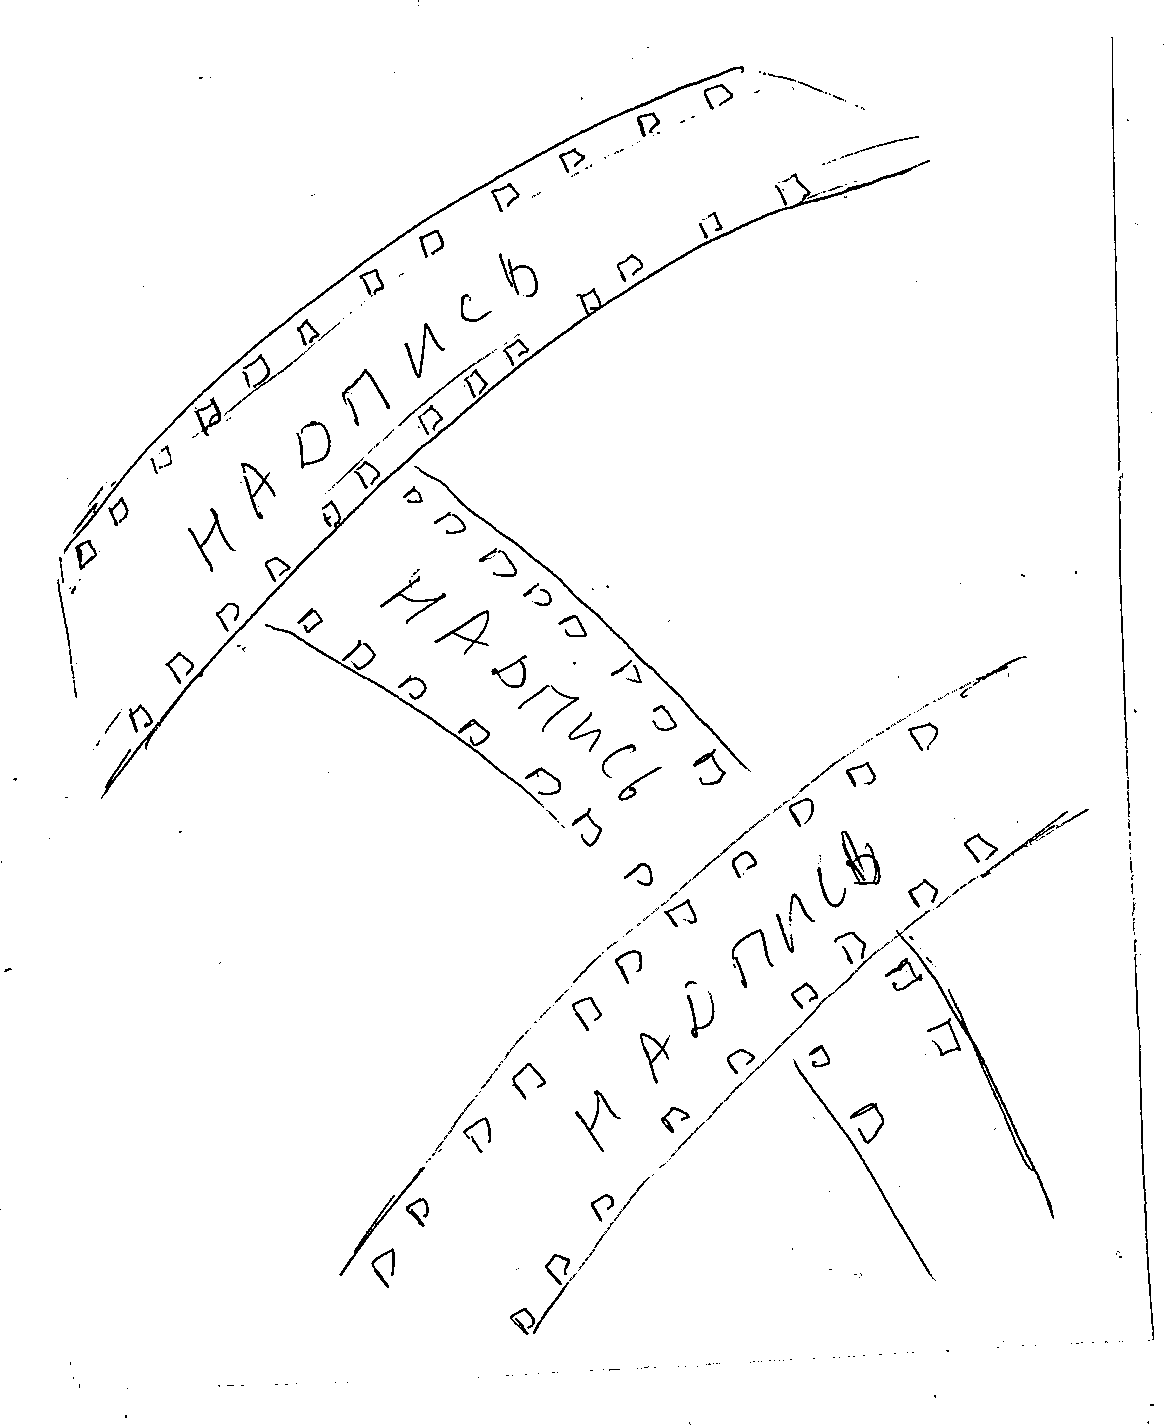 НАДПИСЬ
НАДПИСЬ
НАДПИСЬ